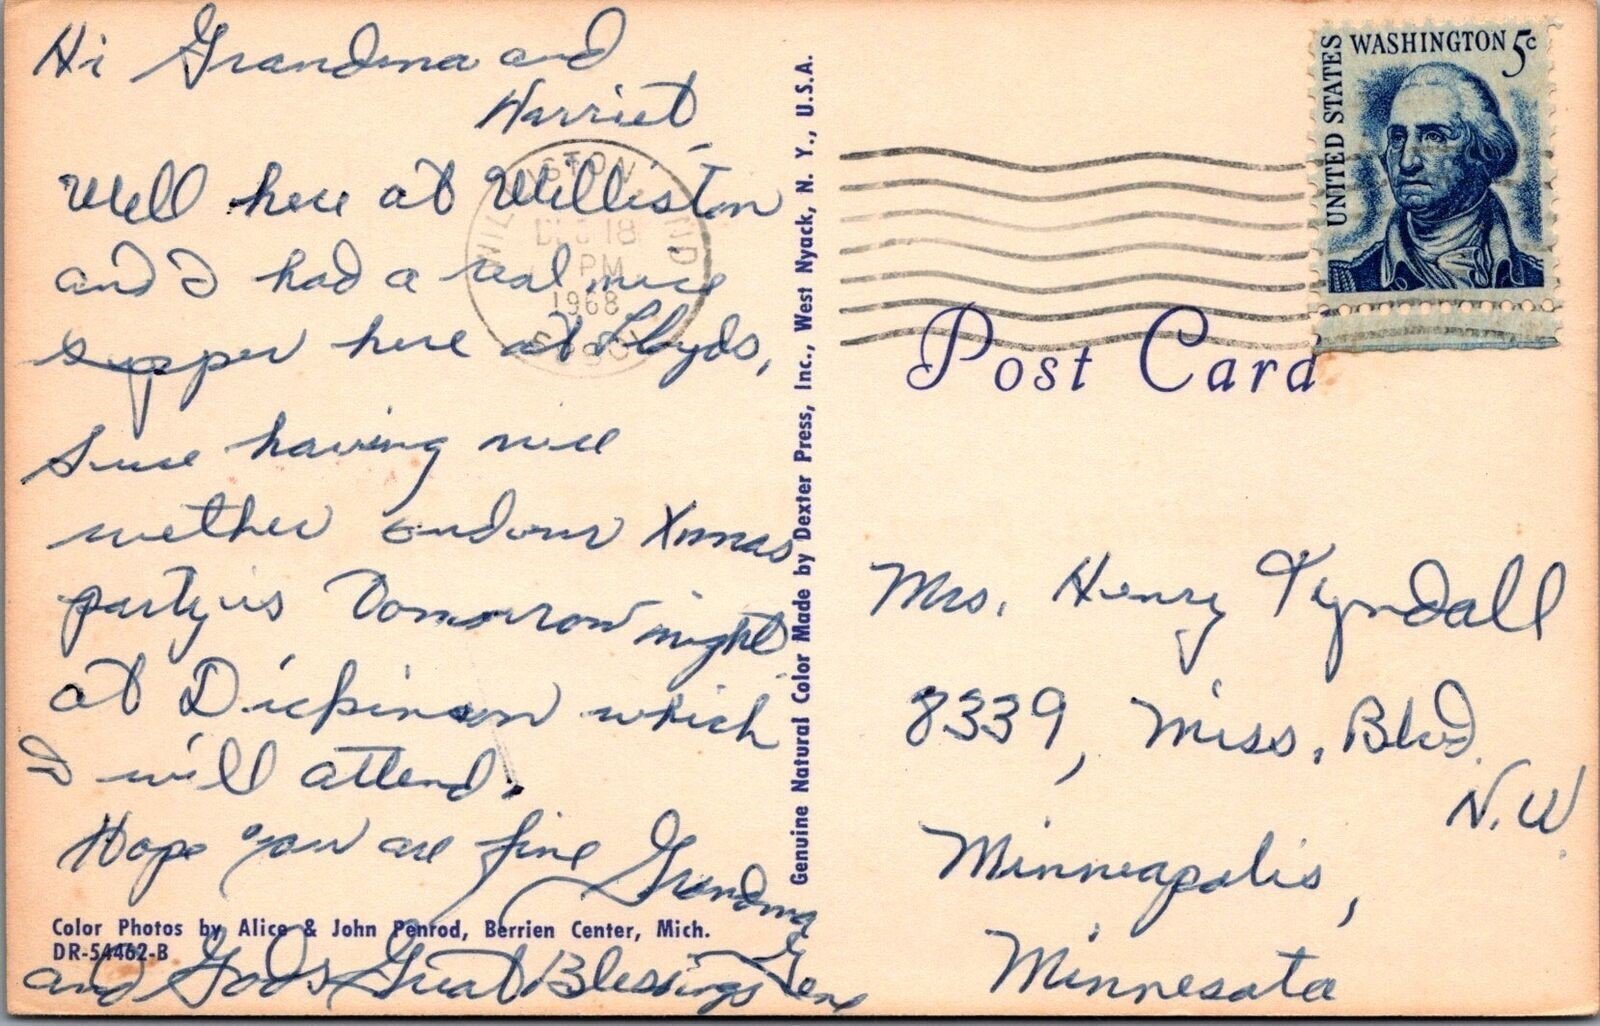 Hi Grandma and
Harriet,
Well here at Williston
and I had a real nice
supper here at Lloyds,
Sure having nice
wether and our Xmas
party is Tomorrow night
at Dickinson which
I will attend.
Hope you are fine Grandma
and Gods Great Blessings Gene
Color Photos by Alice & John Penrod, Berrien Center, Mich.
DR-54462-B
Genuine Natural Color Made by Dexter Press, Inc., West Nyack, N. Y., U.S.A.
DEC 18
PM
1968
UNITED STATES
WASHINGTON 5c
Post Card
Mrs. Henry Tyndall
8339, Miss. Blvd.
N.W
Minneapolis,
Minnesota